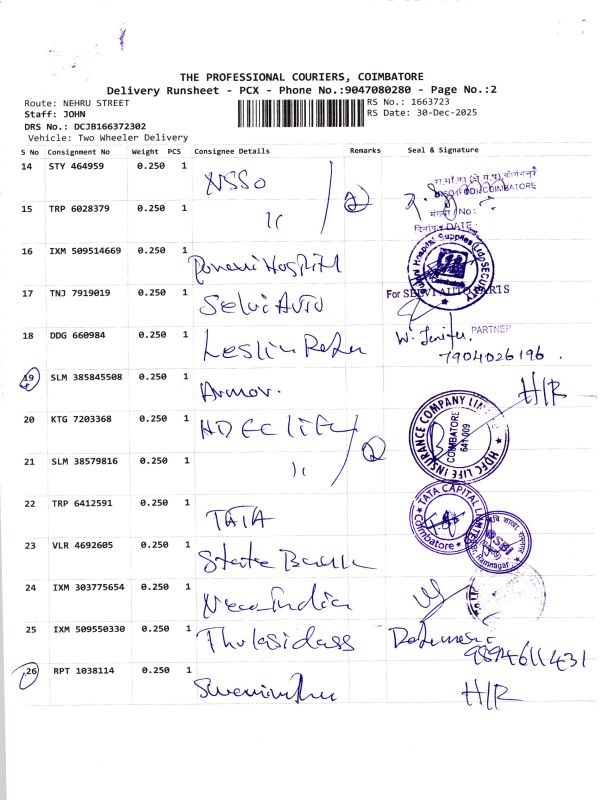 THE PROFESSIONAL COURIERS, COIMBATORE
Delivery Runsheet - PCX - Phone No.:9047080280 - Page No.:2
Route: NEHRU STREET
RS No.: 1663723
Staff: JOHN
RS Date: 30-Dec-2025
DRS No.: DCJB166372302
Vehicle: Two Wheeler Delivery
S No Consignment No Weight PCS Consignee Details Remarks Seal & Signature
14 STY 464959 0.250 1 NSSO 2
NSSO(FOD) COIMBATORE
15 TRP 6028379 0.250 1 11
No:
DATE
16 IXM 509514669 0.250 1 Hospital
Hospital Supplies SECURITY
17 TNJ 7919019 0.250 1 Selvi Auto
For SELVI AUTO PARTS
PARTNER
18 DDG 660984 0.250 1 Leslin
W. Jenifer
7904026196.
19 SLM 385845508 0.250 1 Armor.
H/R
20 KTG 7203368 0.250 1 HDFC Life 2
HDFC LIFE INSURANCE COMPANY
COIMBATORE
641 009
21 SLM 38579816 0.250 1 11
22 TRP 6412591 0.250 1 TATA
TATA CAPITAL LIMITED
Coimbatore
23 VLR 4692605 0.250 1 State Bank
SBI
Ramnagar
24 IXM 303775654 0.250 1 New India
25 IXM 509550330 0.250 1 Thulasidass
9894611431
26 RPT 1038114 0.250 1
H/R